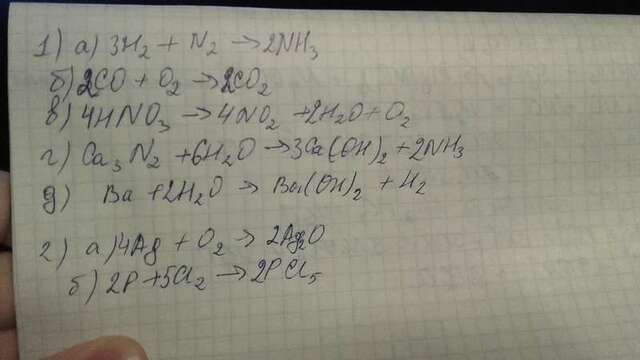 1) а) 3H₂ + N₂ → 2NH₃
б) 2CO + O₂ → 2CO₂
в) 4HNO₃ → 4NO₂ + 2H₂O + O₂
г) Ca₃N₂ + 6H₂O → 3Ca(OH)₂ + 2NH₃
д) Ba + 2H₂O → Ba(OH)₂ + H₂
2) а) 4Ag + O₂ → 2Ag₂O
б) 2P + 5Cl₂ → 2PCl₅